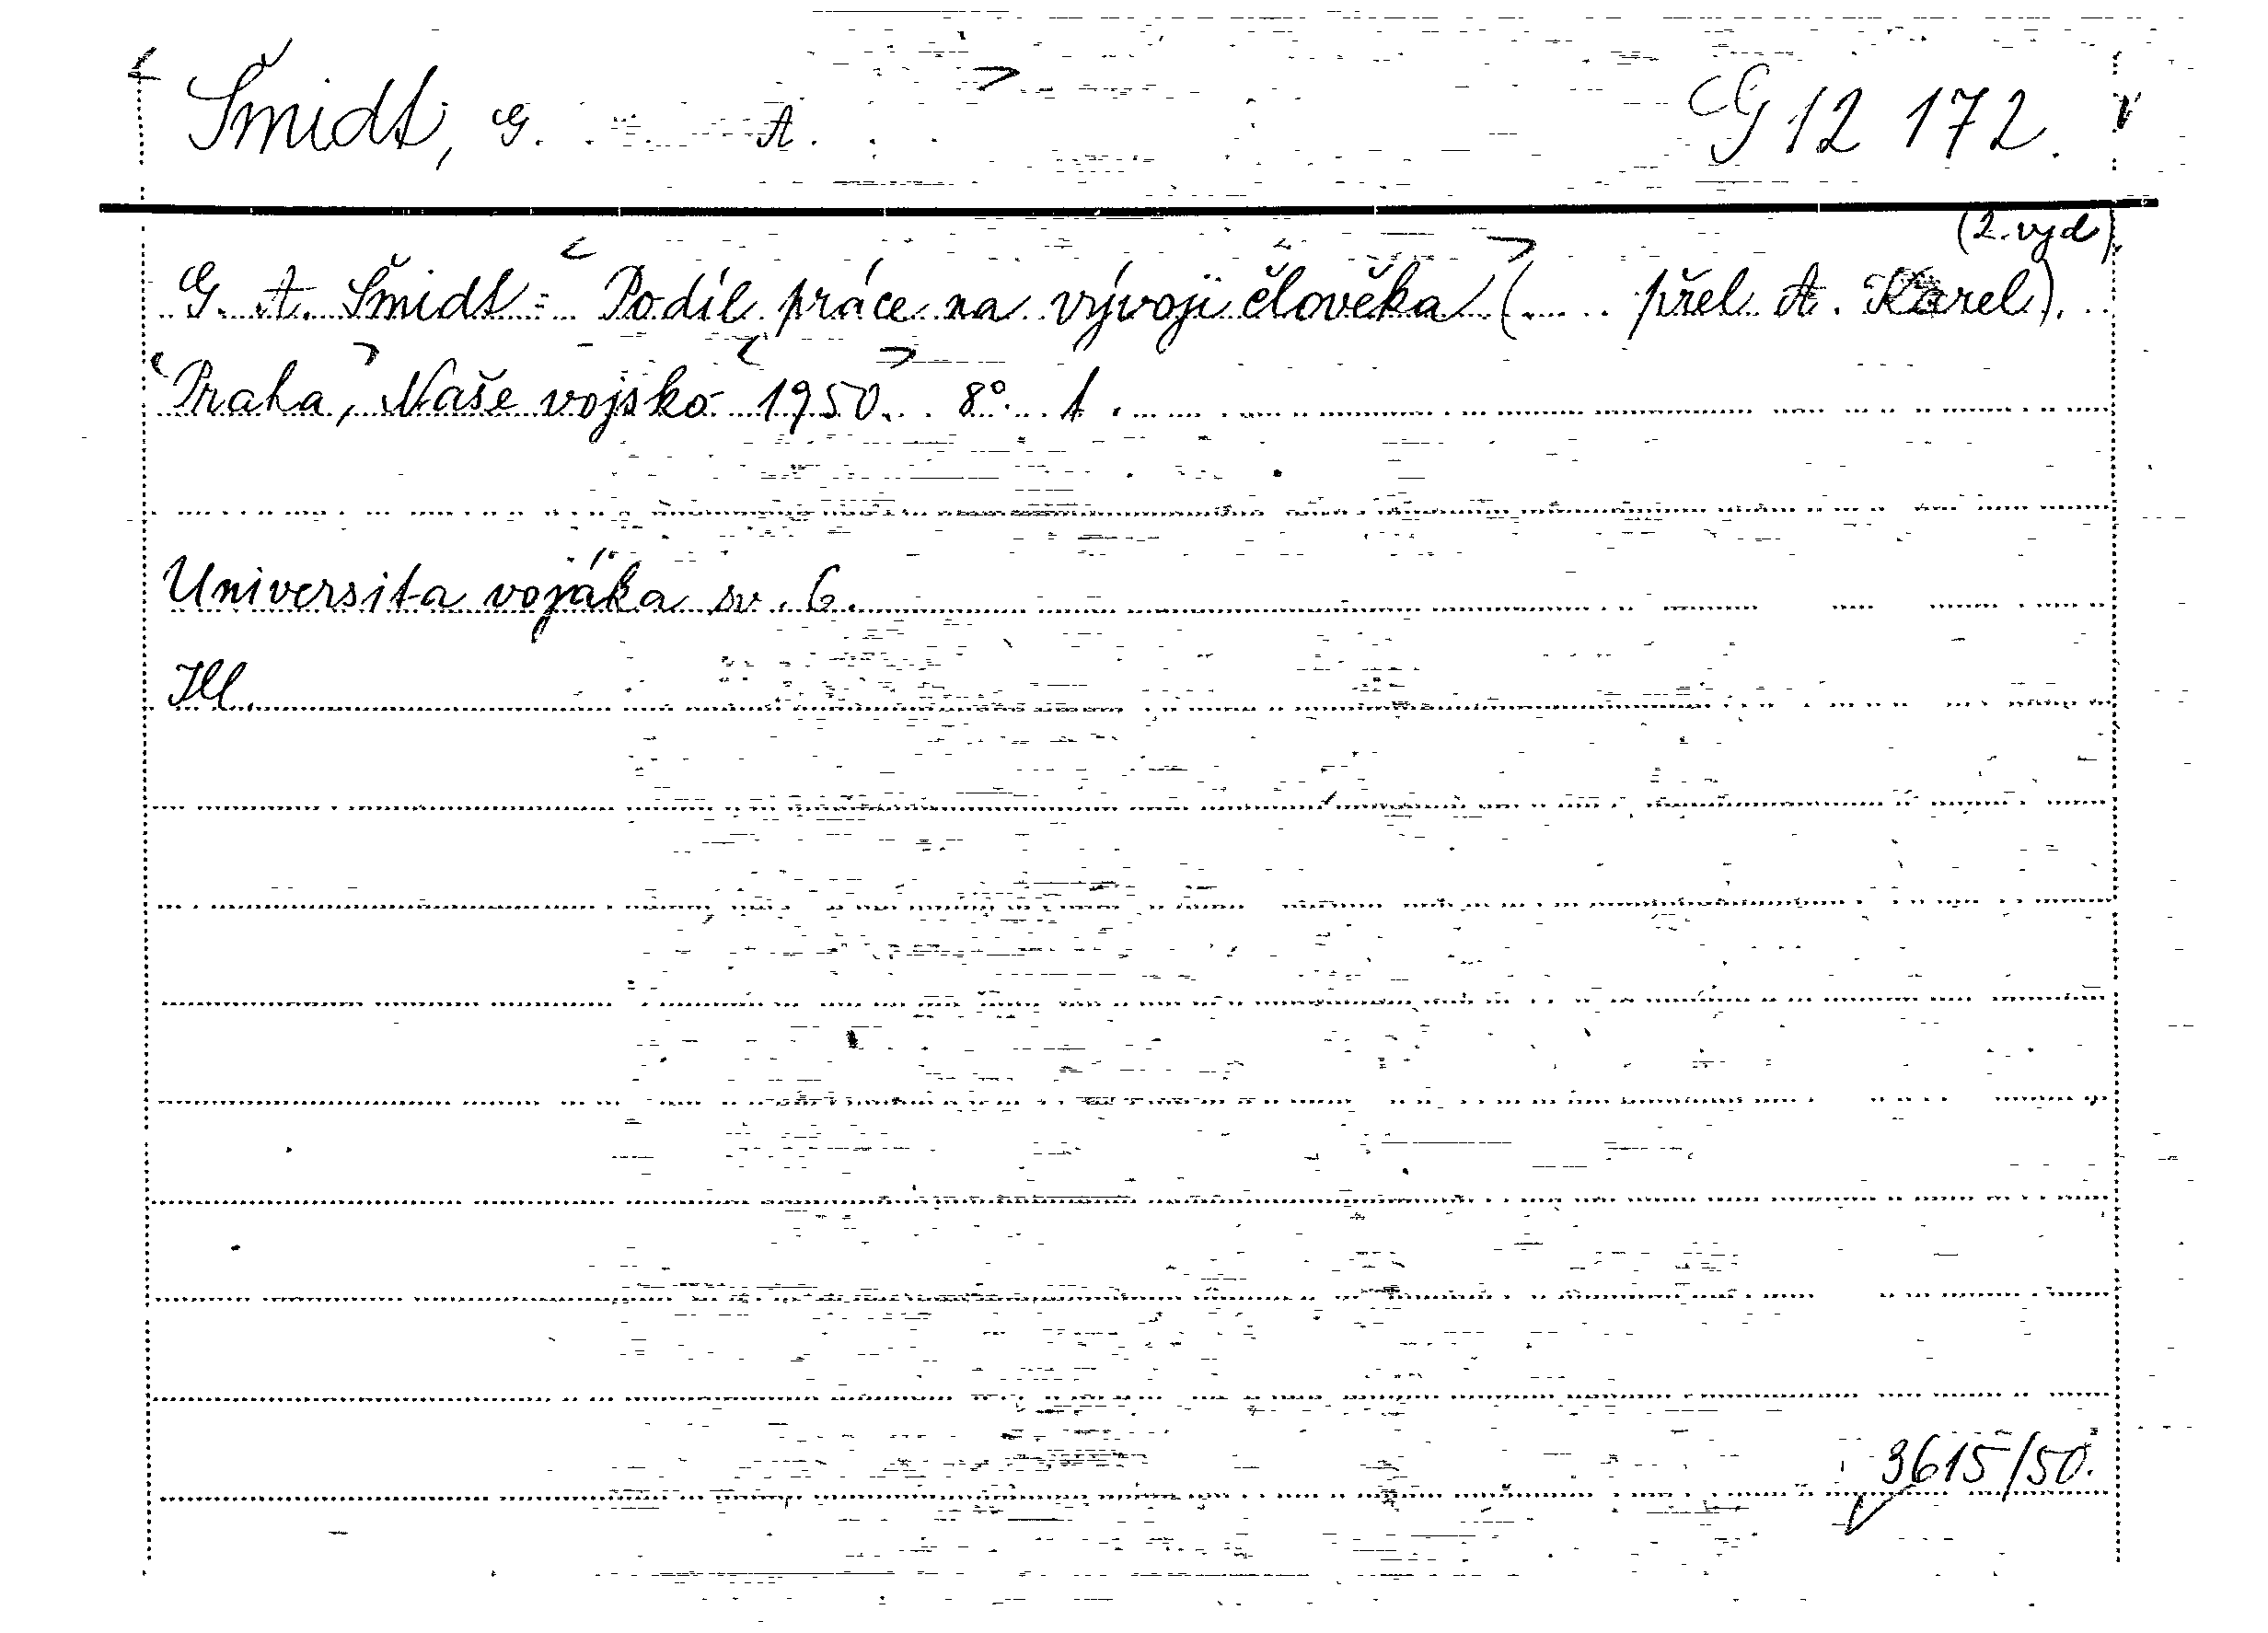 Šmidt, G. A. G 12 172.
(2. vyd)
G. A. Šmidt: Podíl práce na vývoji člověka (... přel. A. Karel).
Praha, Naše vojsko 1950. 8°. 1.
Universita vojáka sv. 6.
Ill.
3615/50.